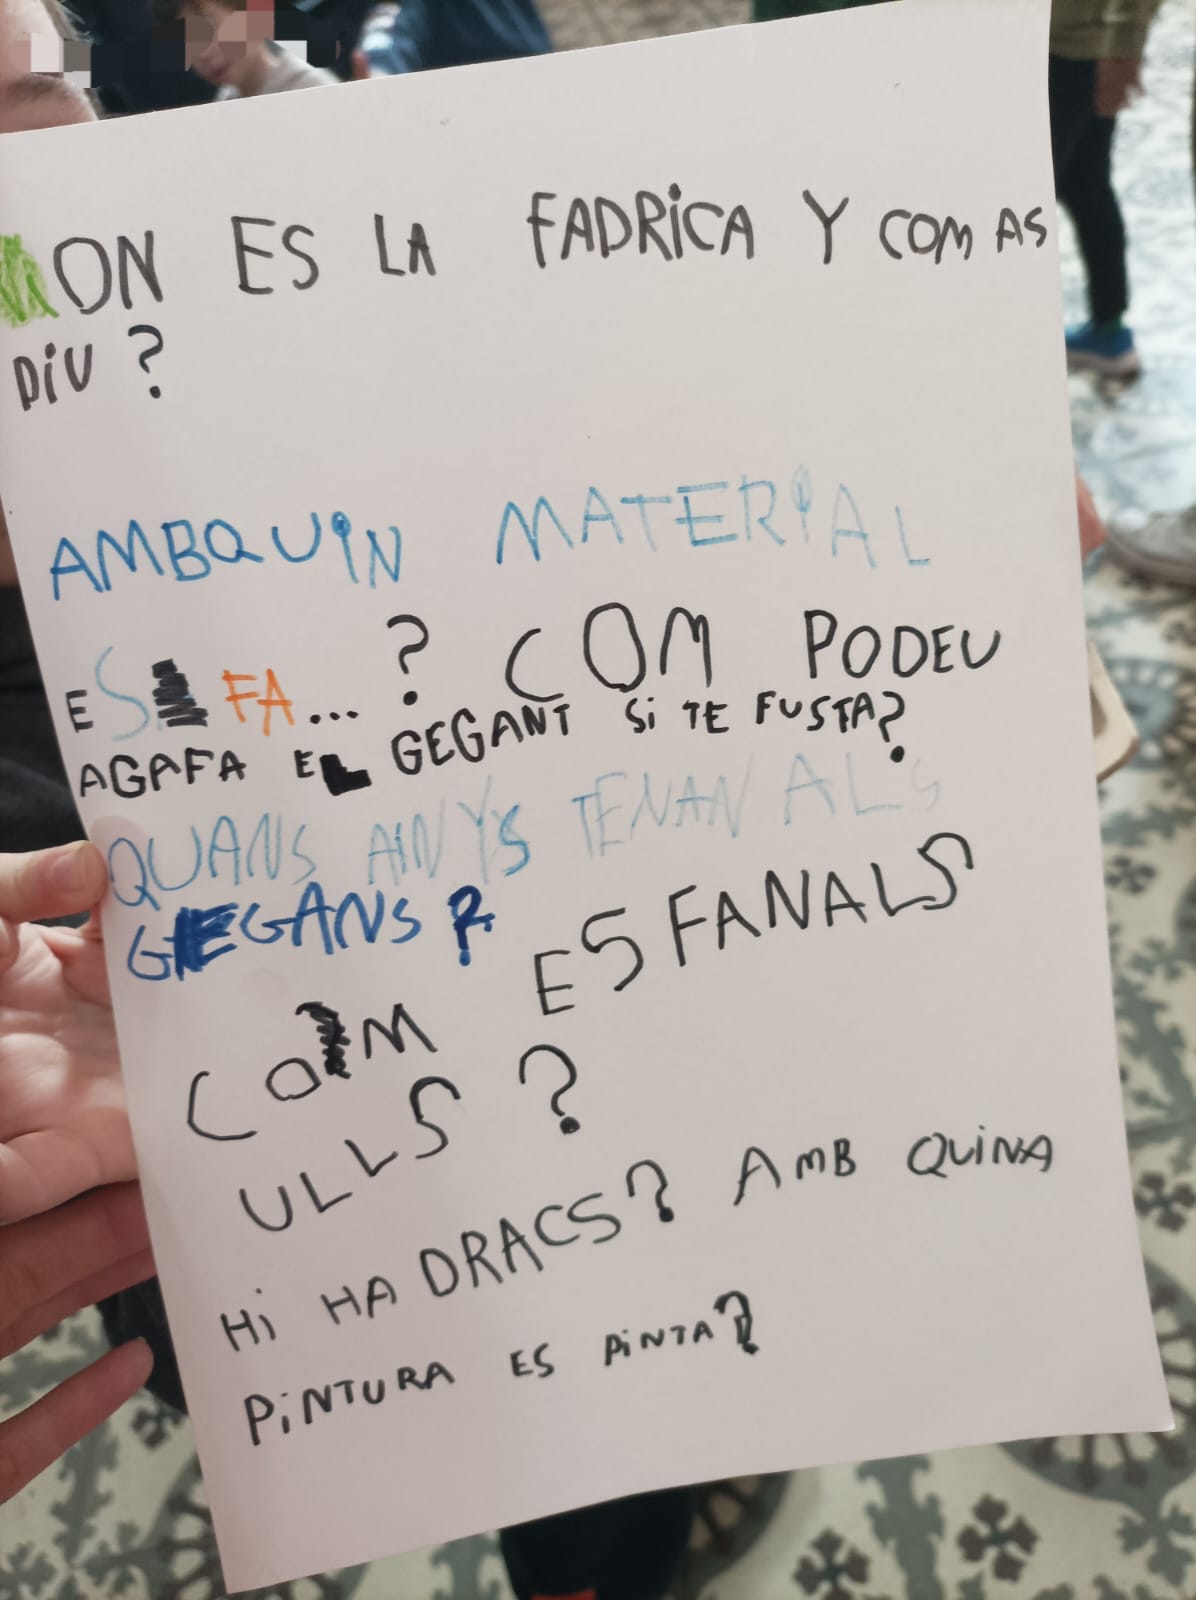 ON ES LA FADRICA Y COM AS
DIU?
AMBQUIN MATERIAL
ES FA...? COM PODEU
AGAFA EL GEGANT SI TE FUSTA?
QUANS ANYS TENAN ALS
GEGANS?
COM ESFANALS
ULLS?
HI HA DRACS? AMB QUINA
PINTURA ES PINTA?